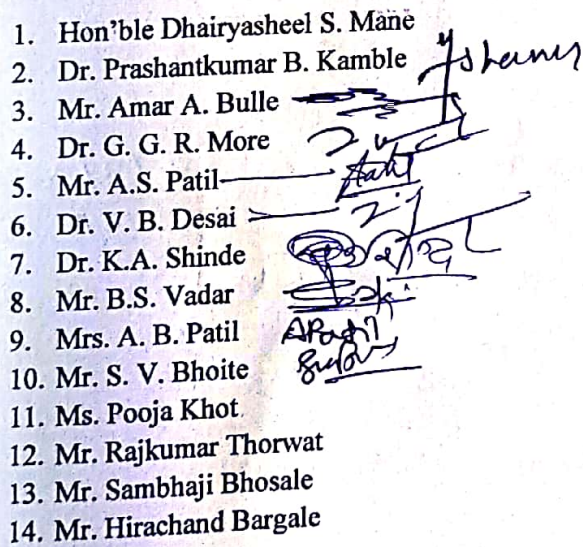 1. Hon'ble Dhairyasheel S. Mane
2. Dr. Prashantkumar B. Kamble
3. Mr. Amar A. Bulle
4. Dr. G. G. R. More
5. Mr. A.S. Patil
6. Dr. V. B. Desai
7. Dr. K.A. Shinde
8. Mr. B.S. Vadar
9. Mrs. A. B. Patil APatil
10. Mr. S. V. Bhoite
11. Ms. Pooja Khot
12. Mr. Rajkumar Thorwat
13. Mr. Sambhaji Bhosale
14. Mr. Hirachand Bargale